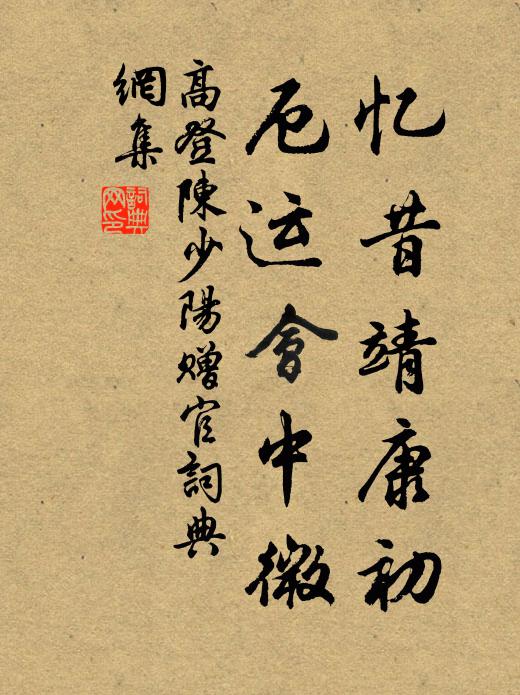 忆昔靖康初
厄运会中微
高登陳少陽贈官詞典
網集
詞典
网印